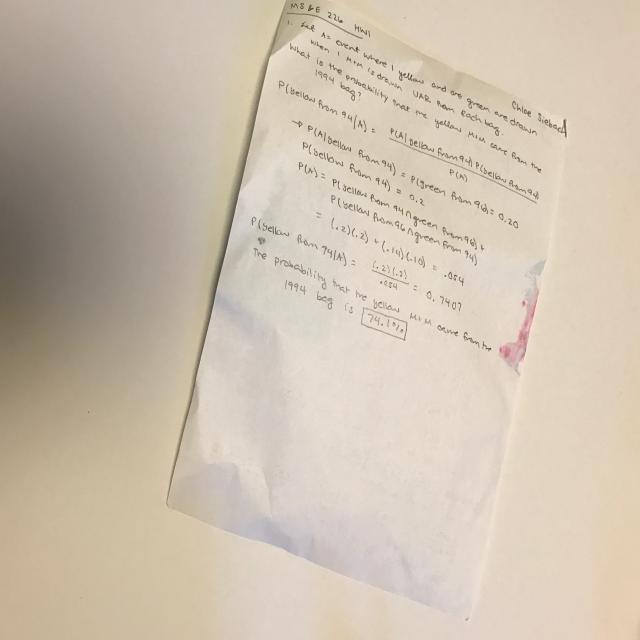 MS&E 226 HW1
Chloe Siebach
1. Let A = event where 1 yellow and one green are drawn
when 1 M+M is drawn UAR from each bag.
What is the probability that the yellow M+M came from the
1994 bag?
P(yellow from 94|A) = P(A|yellow from 94) P(yellow from 94)
P(A)
→ P(A|yellow from 94) = P(green from 96) = 0.20
P(yellow from 94) = 0.2
P(A) = P(yellow from 94 ∩ green from 96) +
P(yellow from 96 ∩ green from 94)
= (.2)(.2) + (.14)(.10) = .054
P(yellow from 94|A) = (.2)(.2) / .054 = 0.7407
The probability that the yellow M+M came from the
1994 bag is 74.1%